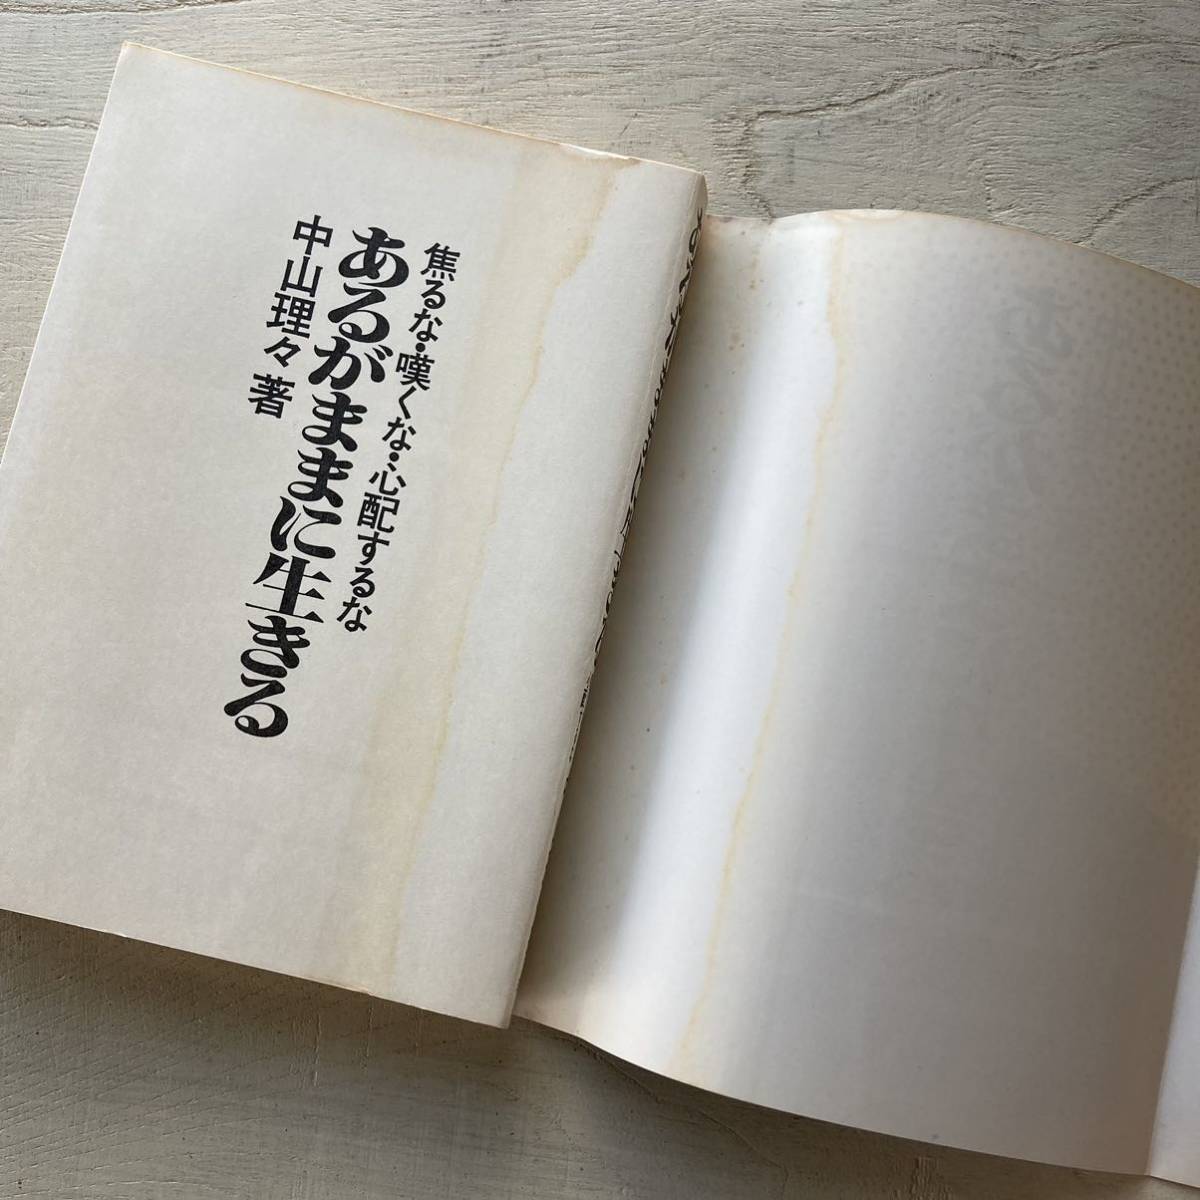 焦るな・嘆くな・心配するな
あるがままに生きる
中山理々 著